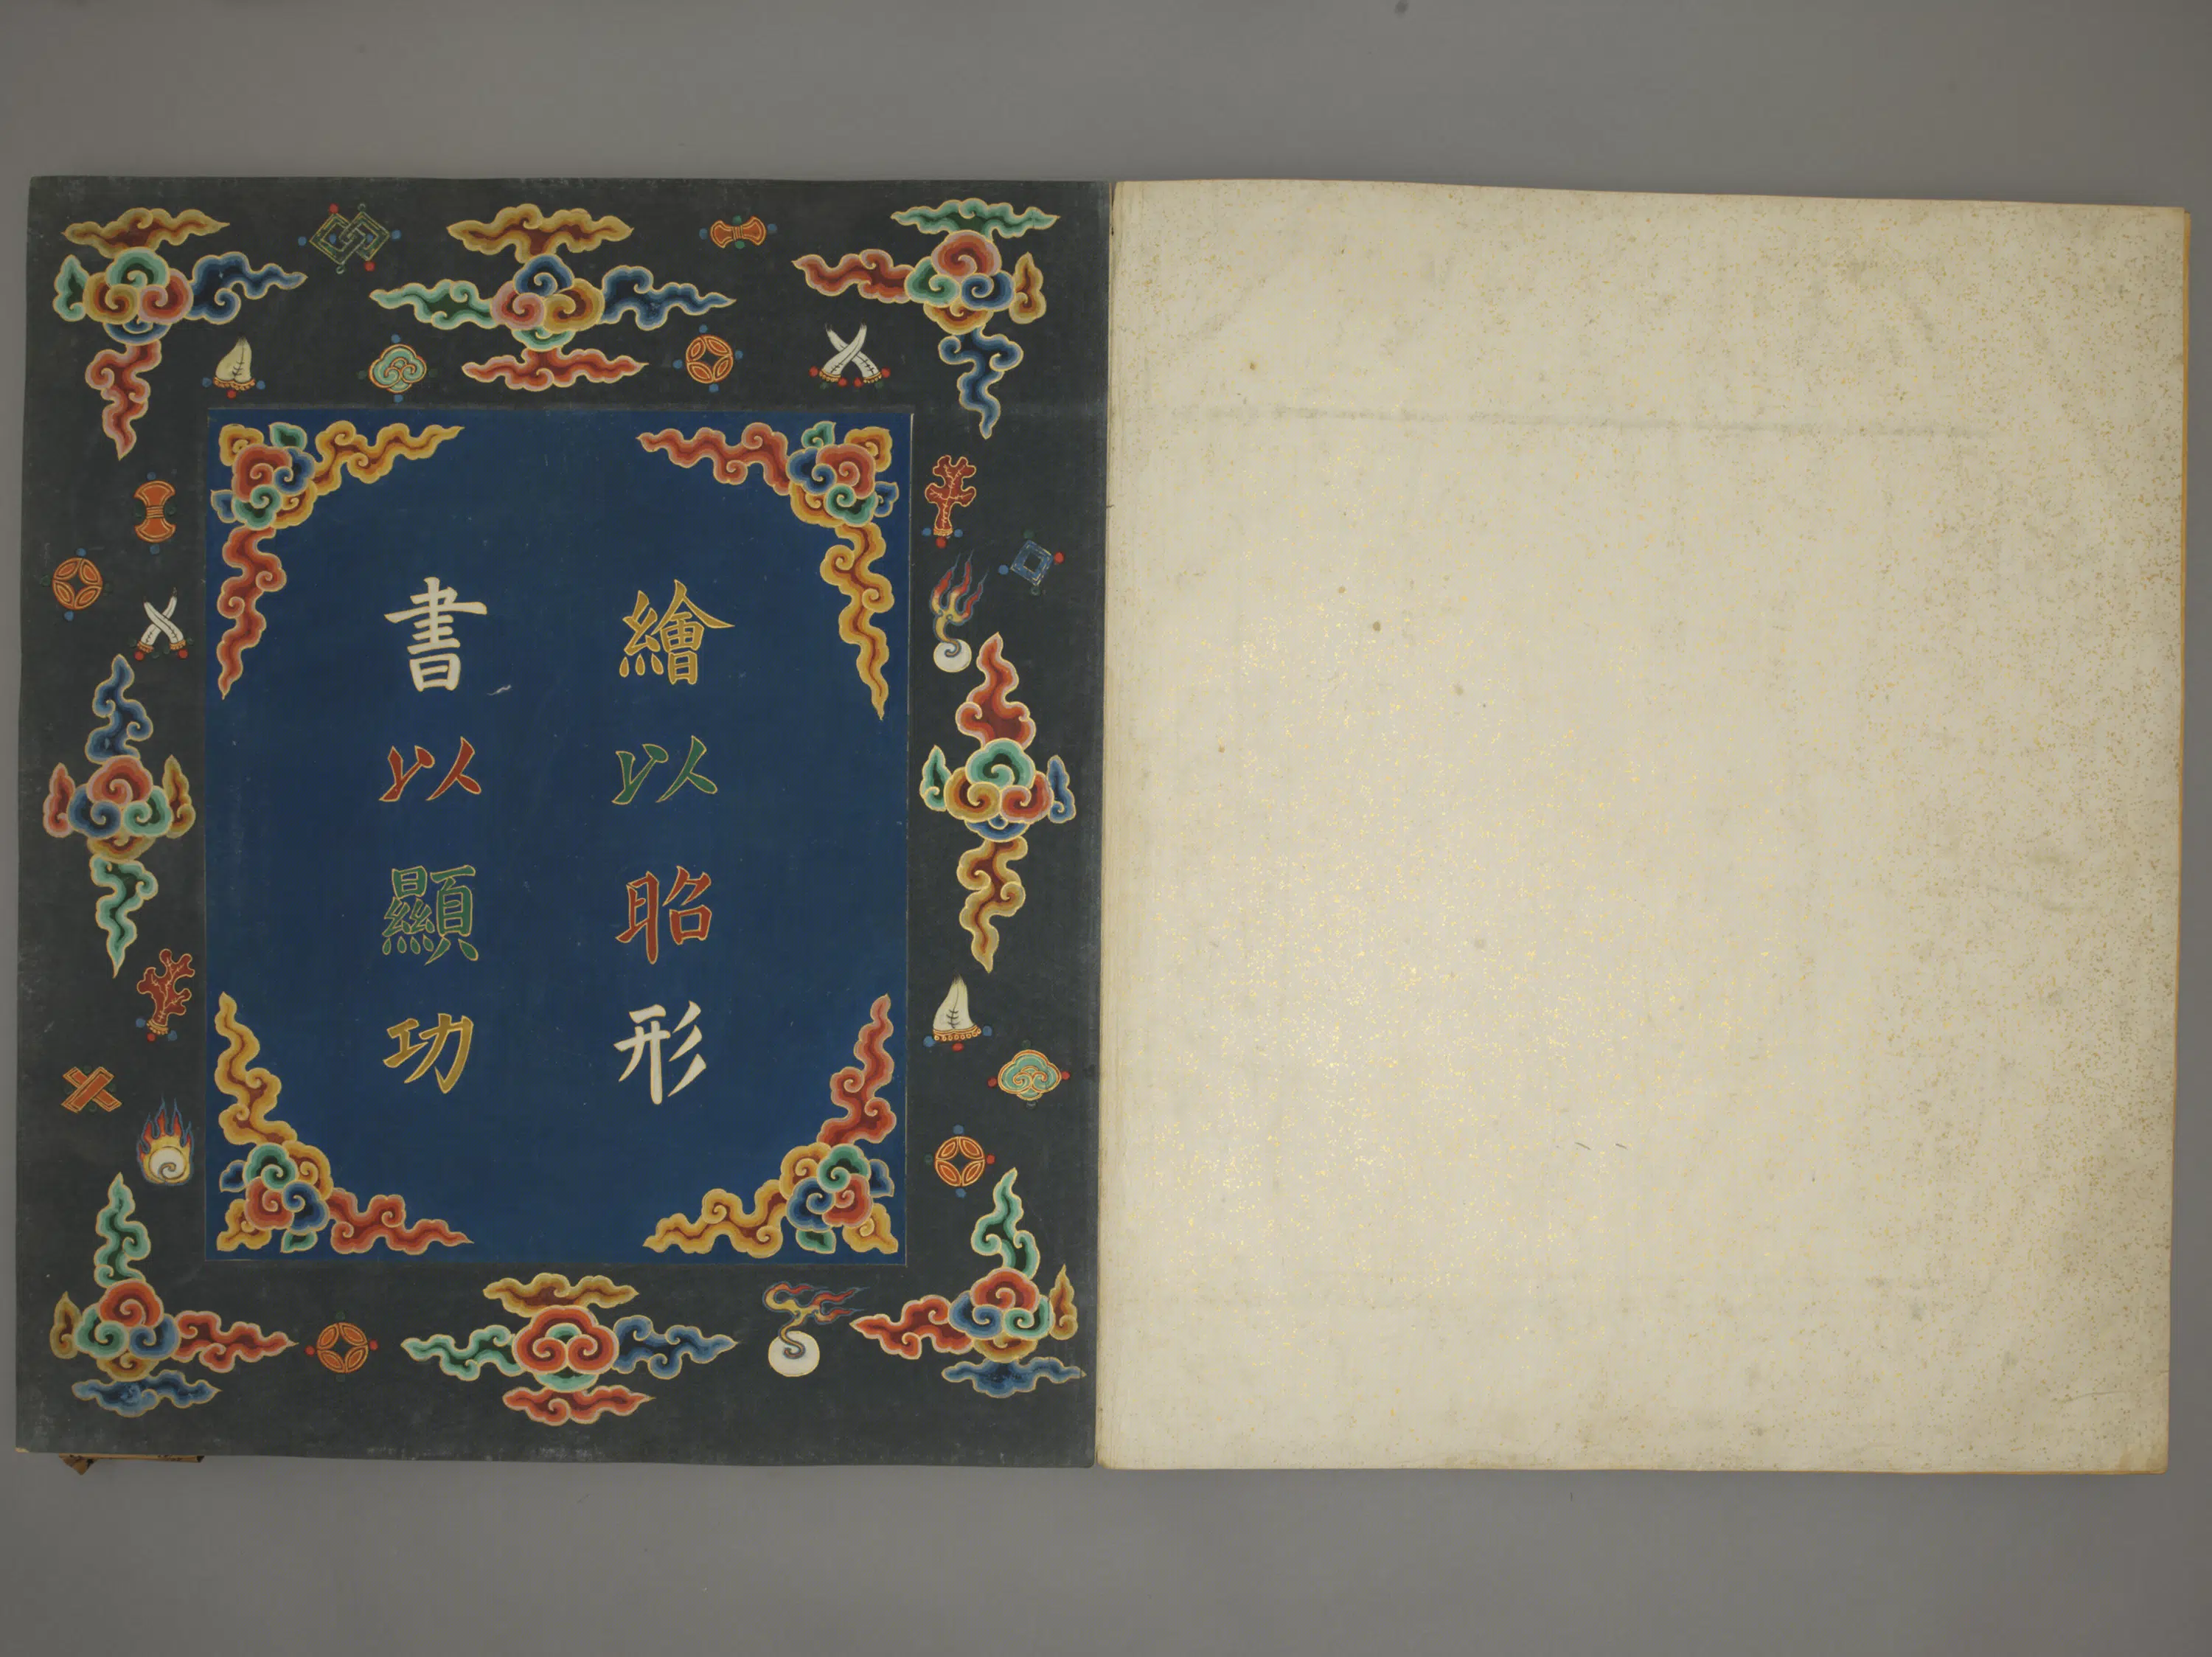 繪以昭形
書以顯功